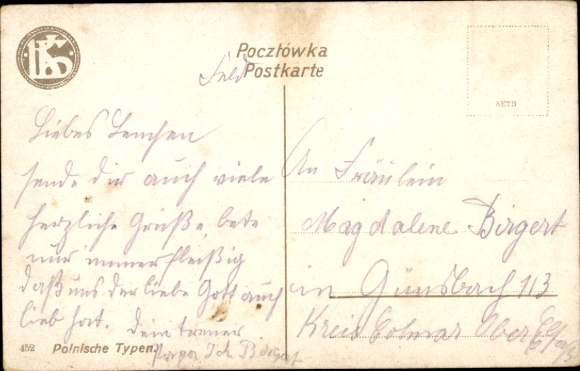 Pocztówka
Feld Postkarte
SETB
Liebes Lenchen
sende dir auch viele
herzliche Grüße, bete
nur immer fleißig
daß uns der liebe Gott auch
lieb hat. Dein treuer
Birgert
An Fräulein
Magdalene Birgert
in Günsbach 113
Kreis Colmar Ober
452 Polnische Typen.